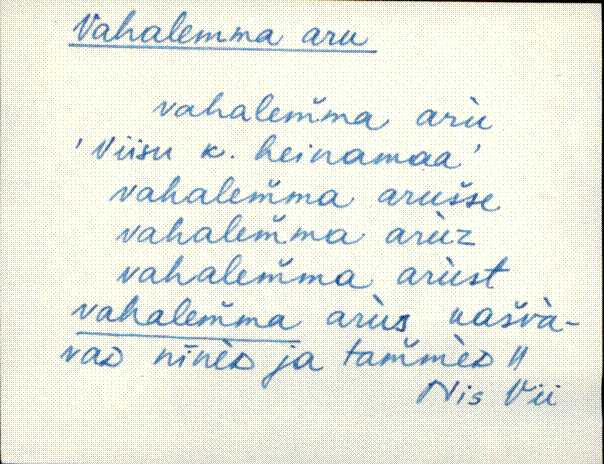 Vahalemma aru
vahalem̆ma arù
'Viisu k. heinamaa'
vahalem̆ma arus̆se
vahalem̆ma arùz
vahalem̆ma arùst
vahalem̆ma arùs "uas̆và-
vaD nīnèD ja tam̆mèD"
Nis Vii